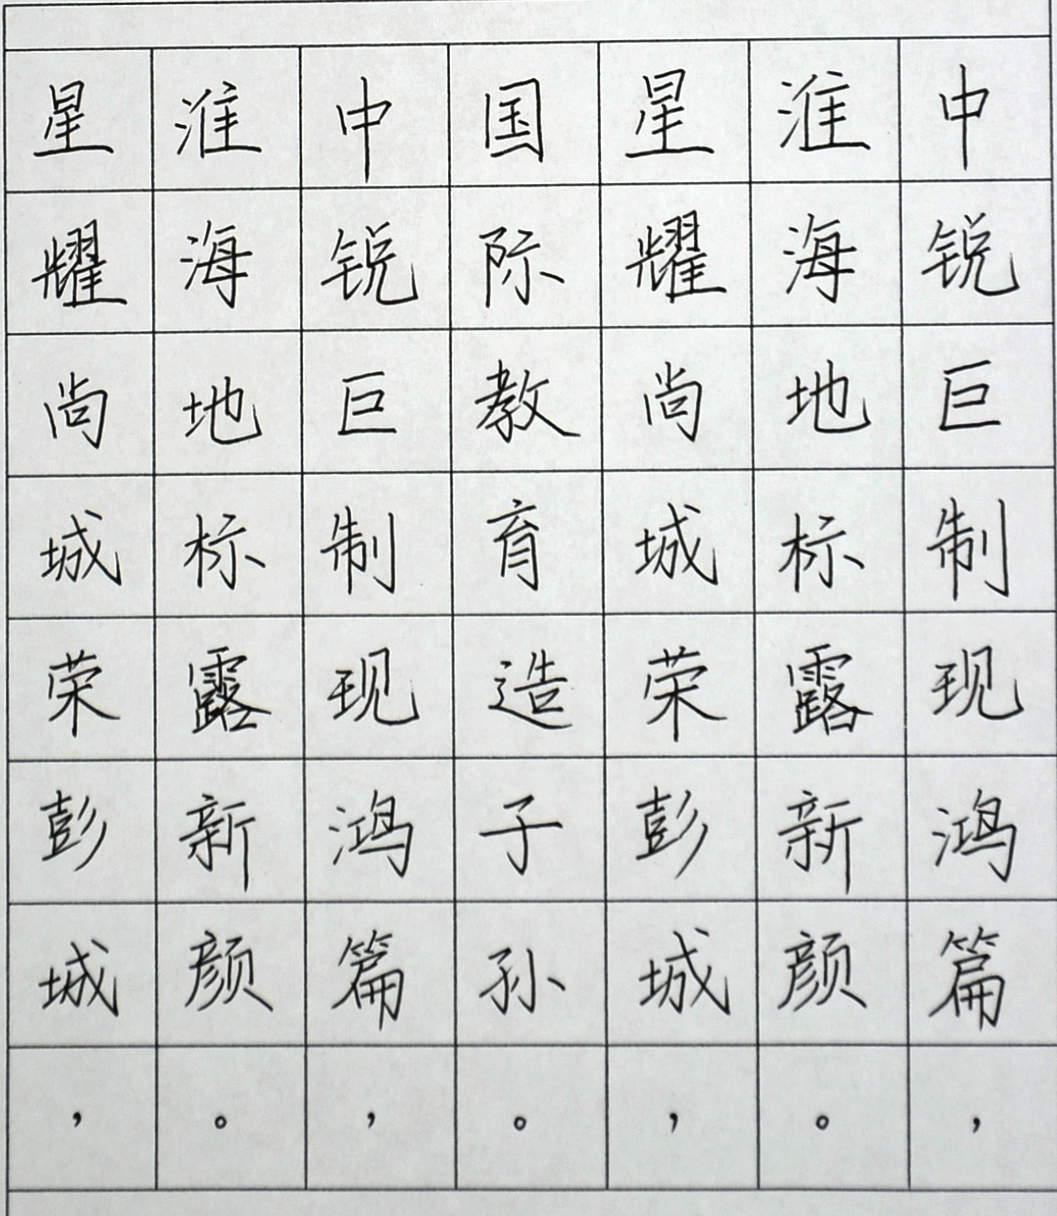 星耀尚城荣彭城，
淮海地标露新颜。
中锐巨制现鸿篇，
国际教育造子孙。
星耀尚城荣彭城，
淮海地标露新颜。
中锐巨制现鸿篇，